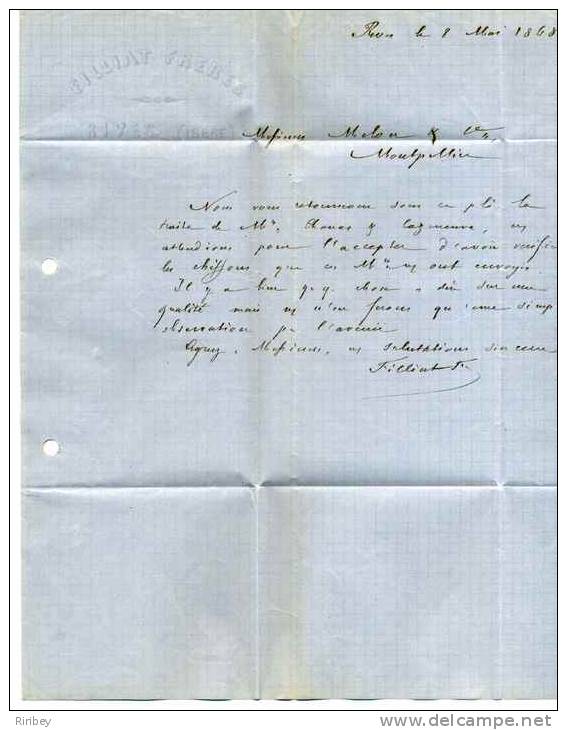 Rives le 8 Mai 1868
FILLIAT FRERES
RIVES (ISERE)
Messieurs Melon & Cie,
Montpellier
Nous vous retournons sous ce pli la
traite de Mrs. & Cazeneuve, ns
attendions pour l'accepter d'avoir vérifié
les chiffons que ces Mrs ns ont envoyés.
Il y a bien q.q. chose a dire sur une
qualité mais ns n'en ferons qu'une simp
observation pr l'avenir
Agréez, Messieurs, ns salutations sincères
Filliat Frs
Riribey
www.delcampe.net